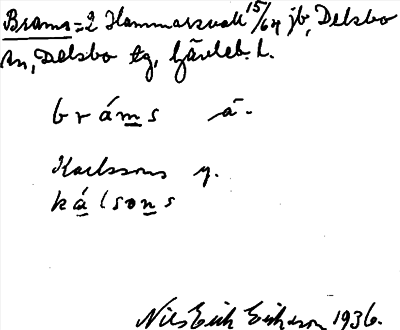 Brams = 2 Hammarsvall 15/64 jb, Delsbo
sn, Delsbo tg, Gävleb. L.
bráms á-
Karlssons g.
kálsons
Nils Erik Erikson 1936.